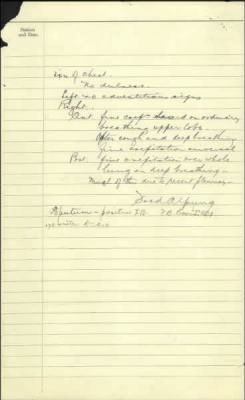 Station
and Date.
Exn of chest.
No dulness.
Left no adventitious signs
Right.
Ant fine creps heard on ordinary
breathing upper lobe.
After cough and deep breathing
fine crepitation universal
Post. fine crepitation over whole
lung on deep breathing -
Much of this due to recent pleurisy -
Sputum - positive T.B.